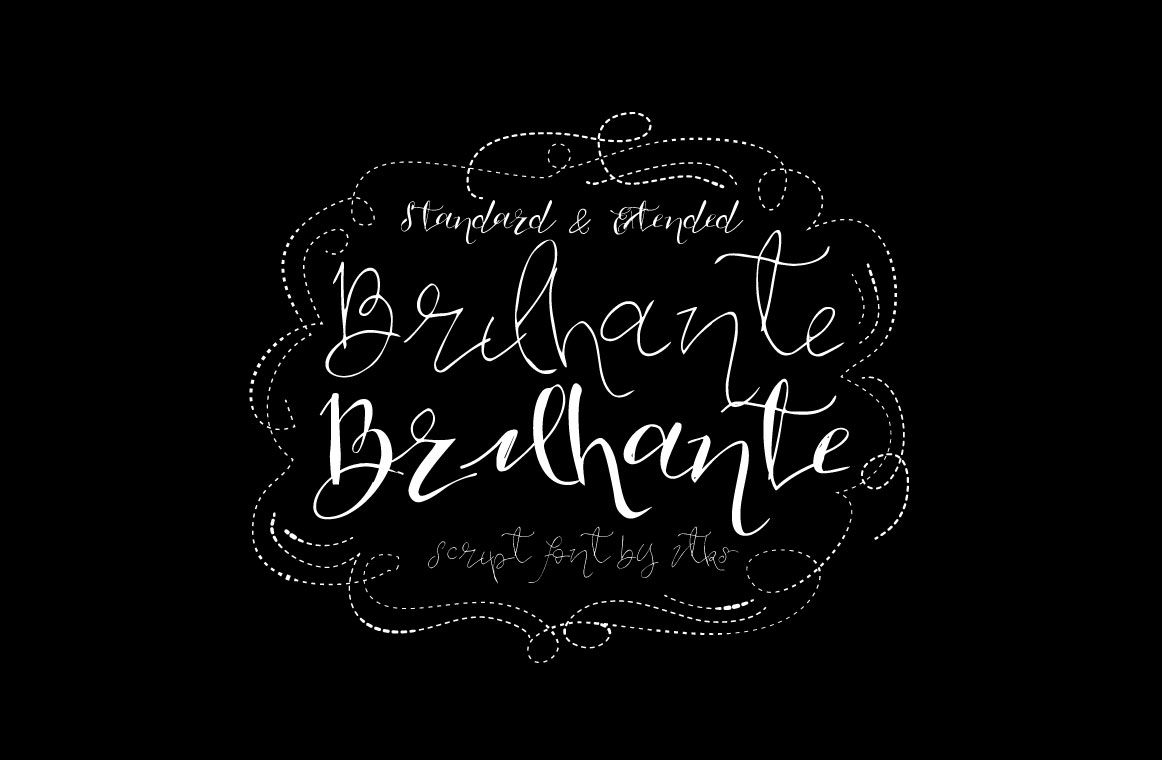 Standard & Extended
Brilhante
Brilhante
script font by itks